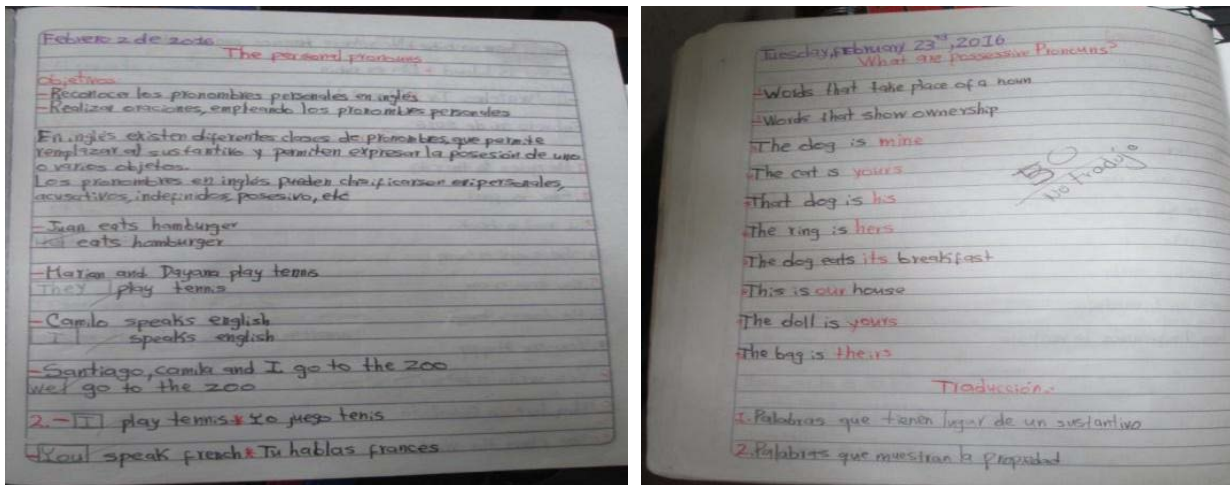 Febrero 2 de 2016
The personal pronouns
Objetivos
-Reconocer los pronombres personales en inglés
-Realizar oraciones, empleando los pronombres personales
En inglés existen diferentes clases de pronombres que permite
remplazar al sustantivo y permiten expresar la posesión de uno
o varios objetos.
Los pronombres en inglés pueden clasificarsen en:personales,
acusativos, indefinidos, posesivo, etc
-Juan eats hamburger
eats hamburger
-Marian and Dayana play tennis
They play tennis
-Camilo speaks english
I speaks english
-Santiago, camila and I go to the zoo
we go to the zoo
2.-I play tennis*Yo juego tenis
-You speak french*Tu hablas frances
Tuesday, February 23rd, 2016
What are possessive Pronouns?
-Words that take place of a noun
-Words that show ownership
The dog is mine
The cat is yours
That dog is his
The ring is hers
The dog eats its breakfast
This is our house
The doll is yours
The bag is theirs
No tradujo
Traducción
1.Palabras que tienen lugar de un sustantivo
2.Palabras que muestran la propiedad